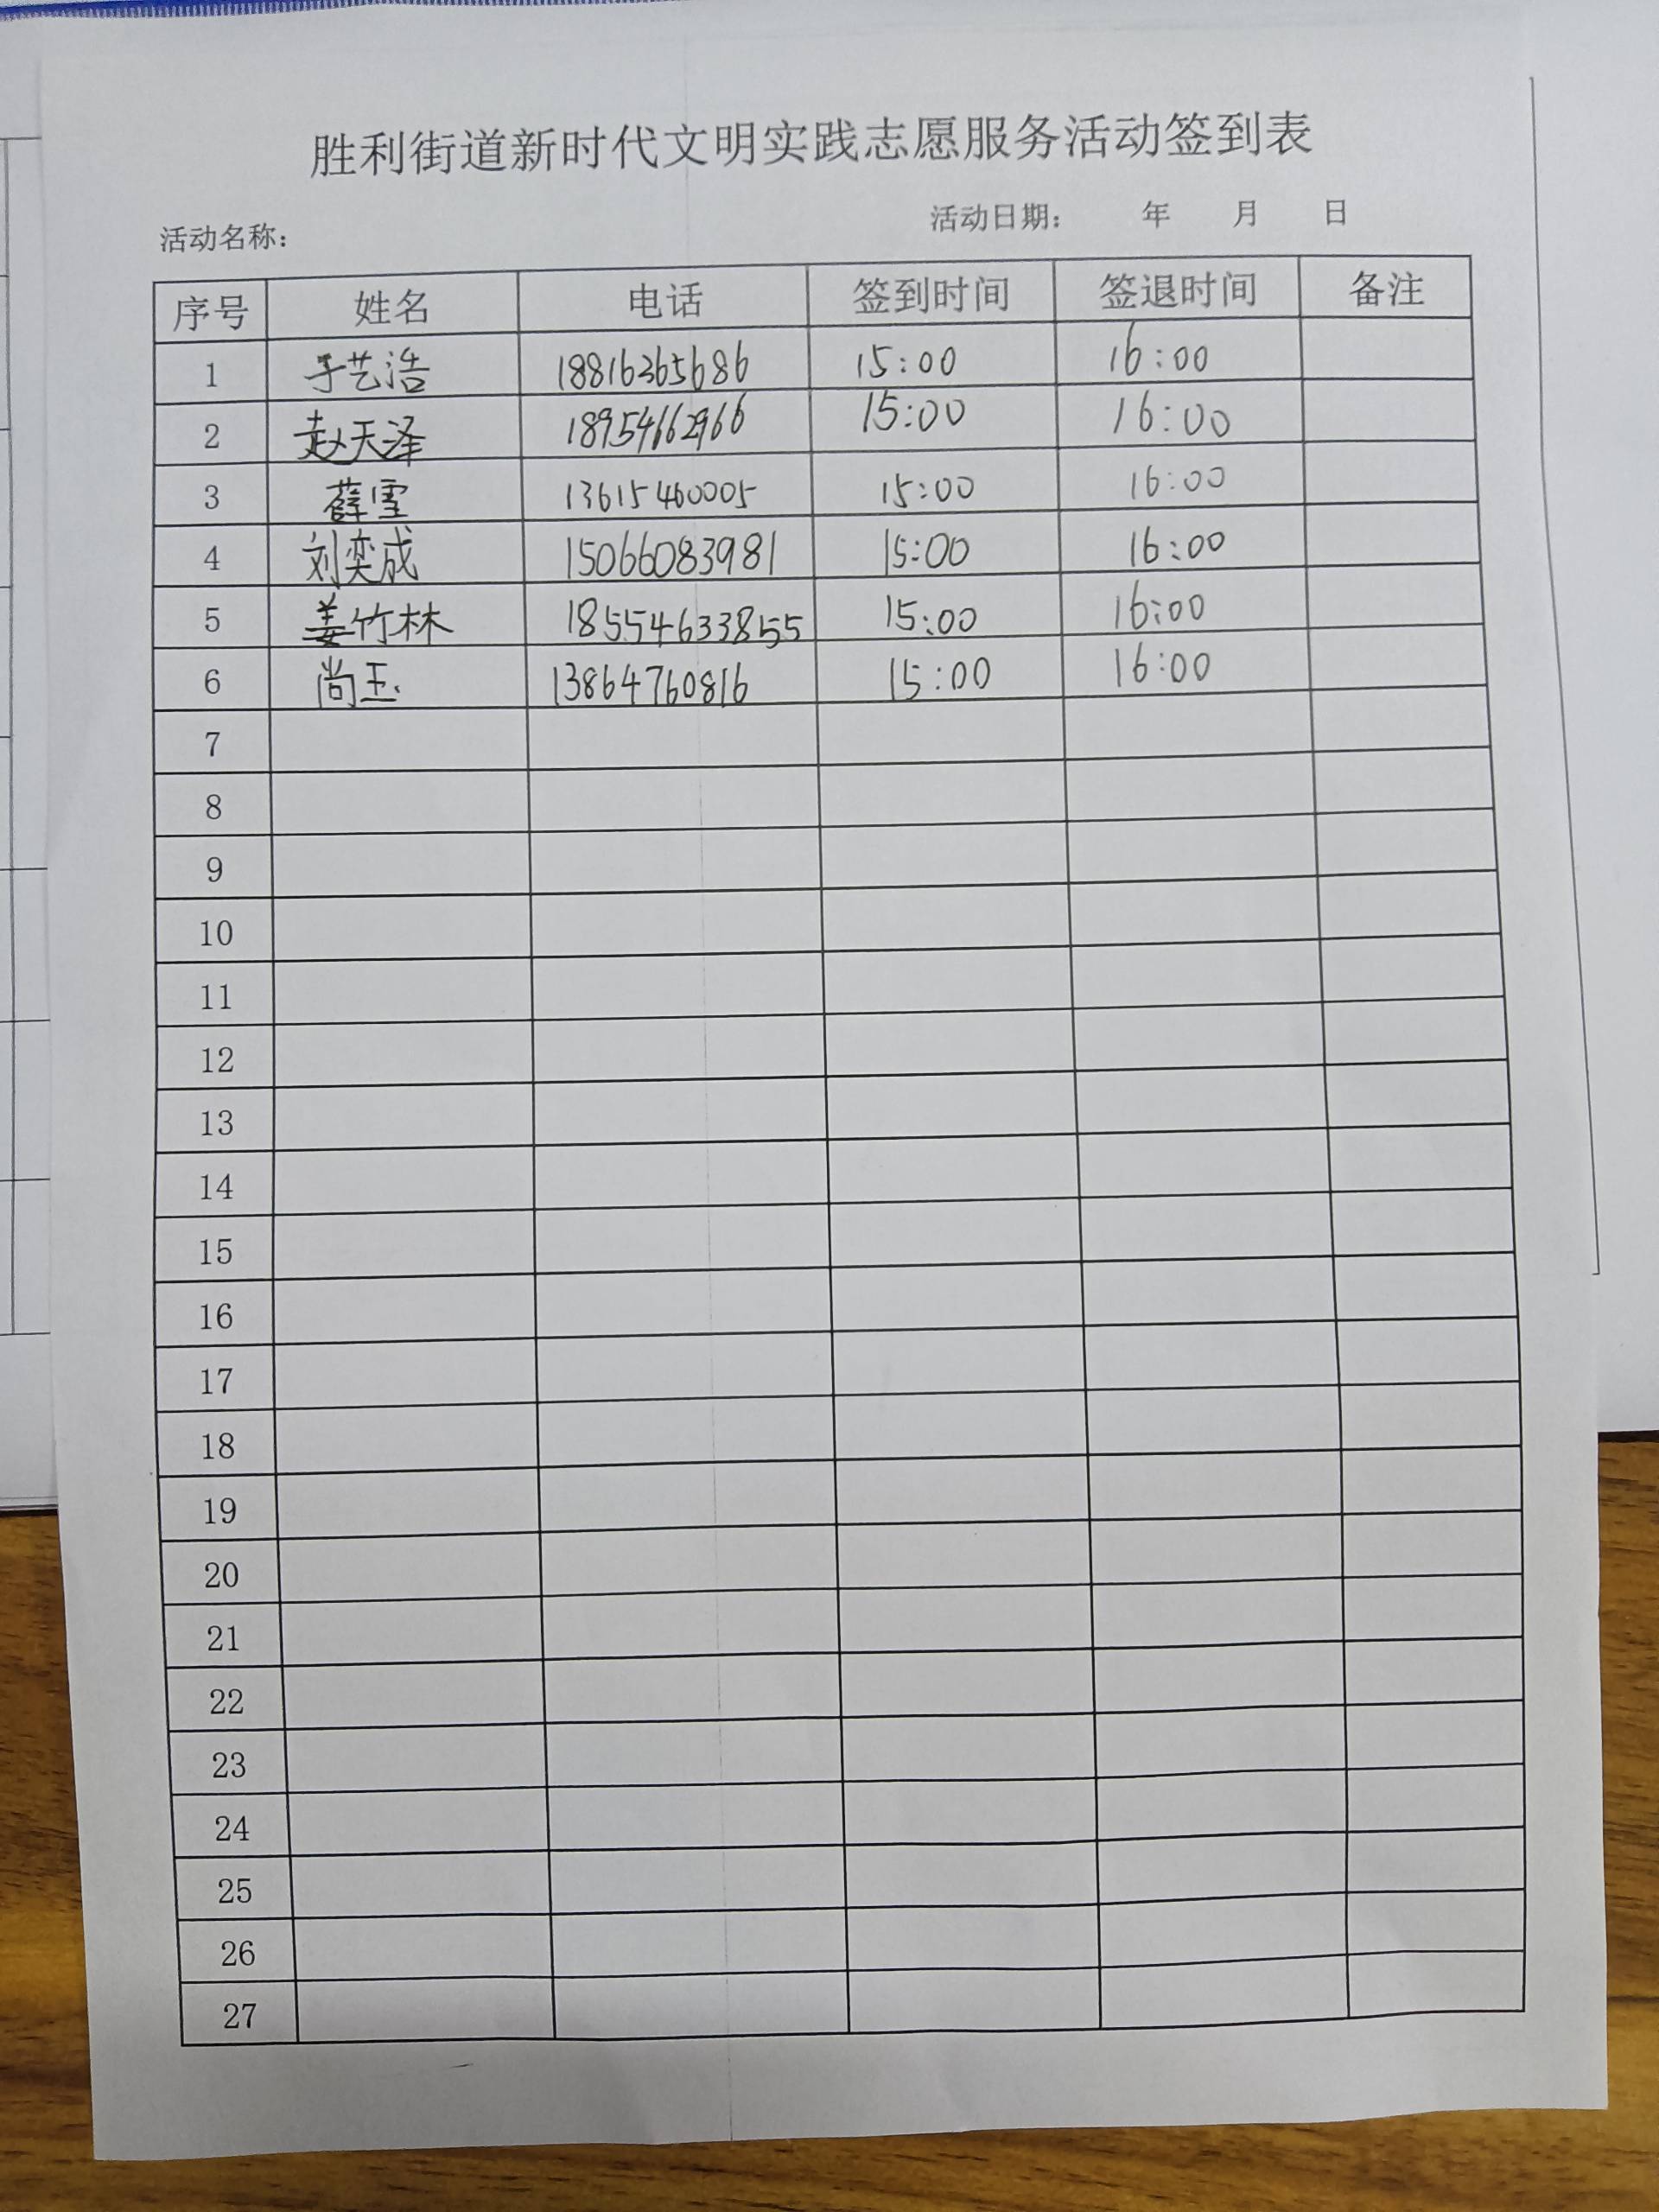 胜利街道新时代文明实践志愿服务活动签到表
活动名称： 活动日期： 年 月 日
序号 姓名 电话 签到时间 签退时间 备注
1 于艺浩 18816365686 15:00 16:00
2 赵天泽 18954662966 15:00 16:00
3 薛雪 13615460005 15:00 16:00
4 刘奕成 15066083981 15:00 16:00
5 姜竹林 18554633855 15:00 16:00
6 尚玉 13864760816 15:00 16:00
7
8
9
10
11
12
13
14
15
16
17
18
19
20
21
22
23
24
25
26
27